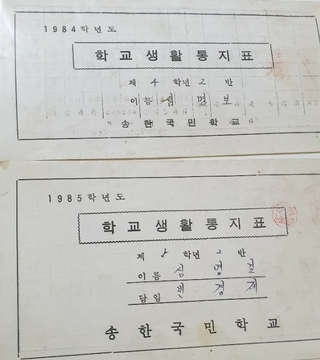 1984학년도
학교생활통지표
제 4 학년 2 반
이름 심 명 보
송한국민학교
1985학년도
학교생활통지표
제 5 학년 2 반
이름 심 명 보
담임 민 경
송한국민학교